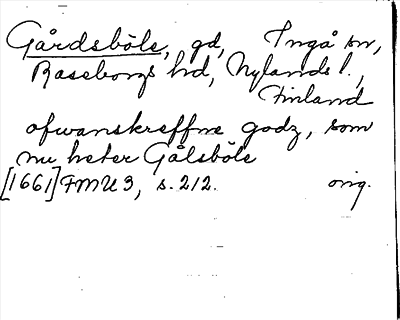 Gårdsböle, gd, Ingå sn,
Raseborgs hd, Nylands l.,
Finland
ofwanskreffne godz, som
nu heter Gålsböle
[1661] FMU 3, s. 212. orig.